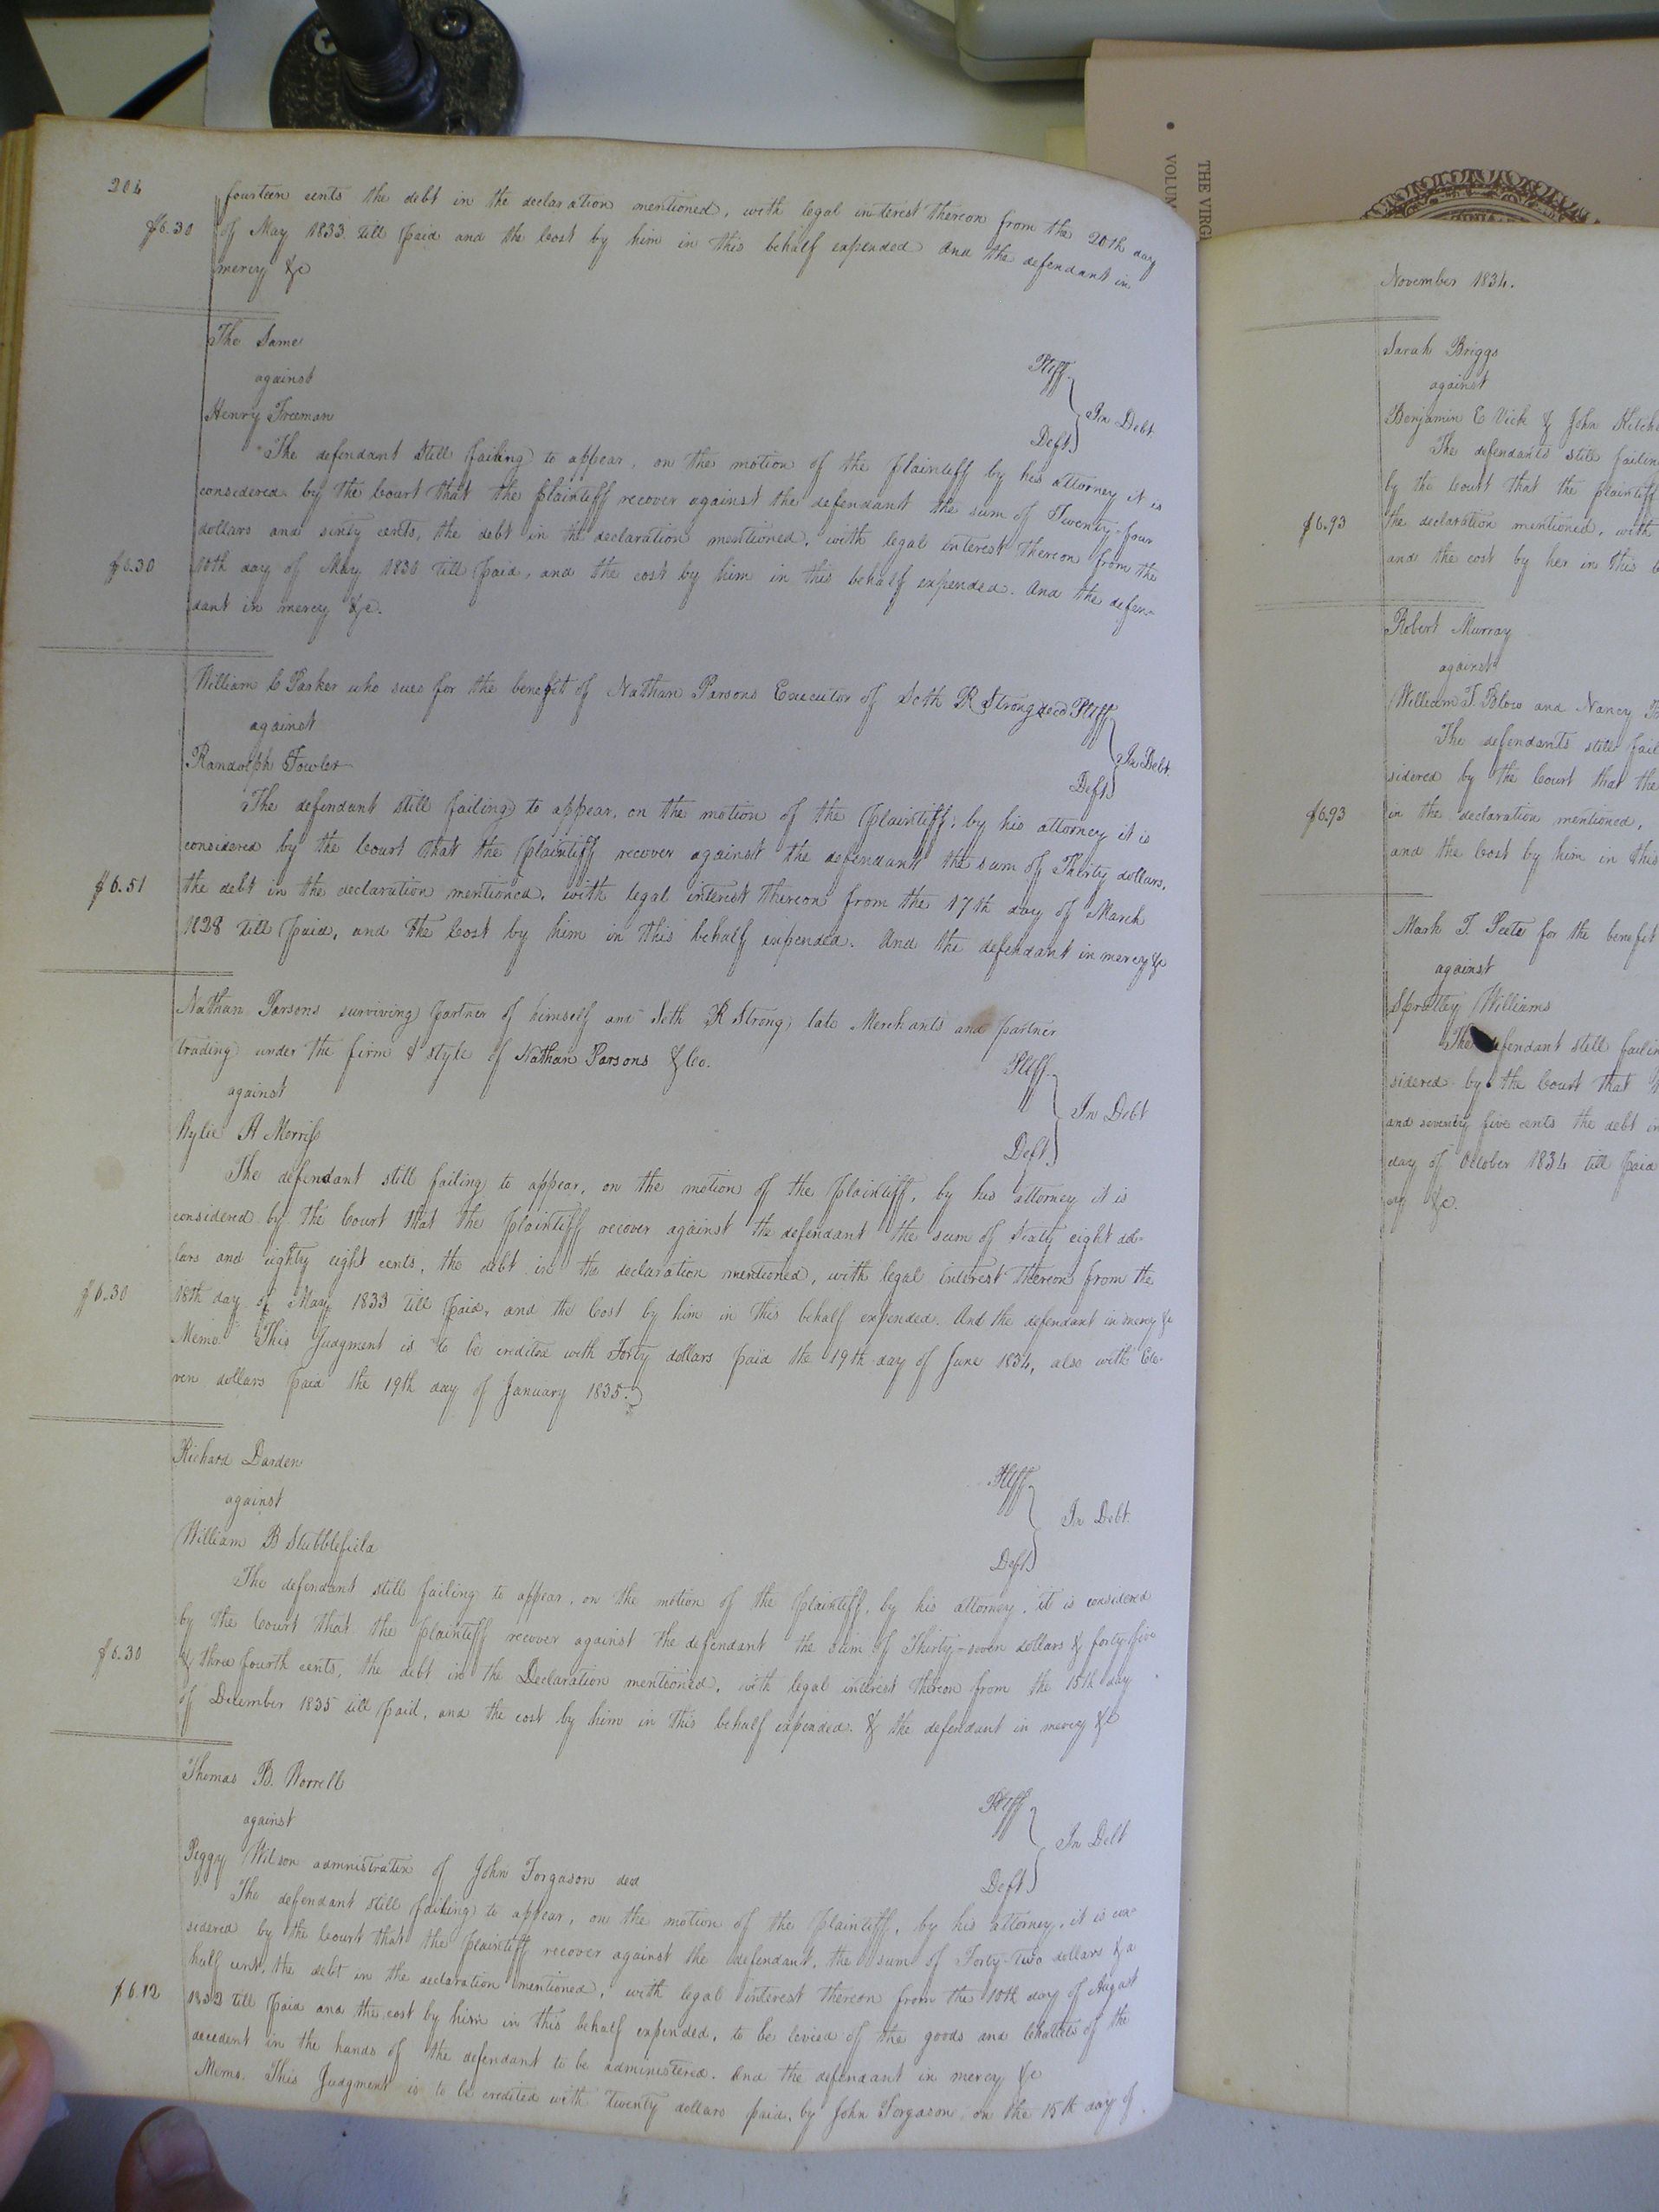 204
fourteen cents the debt in the declaration mentioned, with legal interest thereon from the 20th day
$6.30
of May 1833 till paid and the Cost by him in this behalf expended And the defendant in
mercy &c
The Same
Pltff
against
In Debt.
Henry Freeman
Deft
The defendant still failing to appear, on the motion of the plaintiff by his attorney it is
considered by the Court that the plaintiff recover against the defendant the sum of Twenty-four
dollars and sixty cents, the debt in the declaration mentioned, with legal interest thereon from the
$6.30
10th day of May 1830 till paid, and the cost by him in this behalf expended. And the defen-
dant in mercy &c.
William C Parker who sues for the benefit of Nathan Parsons Executor of Seth R Strong decd Pltff
against
In Debt.
Randolph Fowler
Deft
The defendant still failing to appear, on the motion of the plaintiff, by his attorney it is
considered by the Court that the plaintiff recover against the defendant the sum of Thirty dollars,
$6.51
the debt in the declaration mentioned, with legal interest thereon from the 17th day of March
1828 till paid, and the Cost by him in this behalf expended. And the defendant in mercy &c
Nathan Parsons surviving partner of himself and Seth R Strong late Merchants and partner
trading under the firm & style of Nathan Parsons & Co.
Pltff
against
In Debt
Rylie H Morriss
Deft.
The defendant still failing to appear, on the motion of the plaintiff, by his attorney it is
considered by the Court that the plaintiff recover against the defendant the sum of Sixty eight dol-
lars and eighty eight cents, the debt in the declaration mentioned, with legal interest thereon from the
$6.30
18th day of May 1833 till paid, and the Cost by him in this behalf expended. And the defendant in mercy &c
Memo This Judgment is to be credited with Forty dollars paid the 19th day of June 1834, also with Ele-
ven dollars paid the 19th day of January 1835.
Richard Darden
Pltff
against
In Debt.
William B Stubblefield
Deft
The defendant still failing to appear, on the motion of the plaintiff, by his attorney, it is considered
by the Court that the plaintiff recover against the defendant the sum of Thirty-seven dollars & forty-five
$6.30
& three fourth cents, the debt in the Declaration mentioned, with legal interest thereon from the 15th day
of December 1835 till paid, and the cost by him in this behalf expended. & the defendant in mercy &c
Thomas B. Worrell
Pltff
against
In Debt
Peggy Wilson admnistratrix of John Forgason decd
Deft
The defendant still failing to appear, on the motion of the plaintiff, by his attorney, it is con-
sidered by the Court that the plaintiff recover against the defendant, the sum of Forty-two dollars & a
half cent, the debt in the declaration mentioned, with legal interest thereon from the 10th day of August
$6.12
1832 till paid and the cost by him in this behalf expended, to be levied of the goods and Chattles of the
decedent in the hands of the defendant to be administered. And the defendant in mercy &c
Memo. This Judgment is to be credited with twenty dollars paid, by John Forgason on the 15th day of
THE VIRG
VOLUM
November 1834.
Sarah Briggs
against
Benjamin E Vick & John Kitch
The defendants still failin
by the Court that the plaintiff
$6.93
the declaration mentioned, with
and the cost by her in this b
Robert Murray
against
William T. Blow and Nancy
The defendants still fail
sidered by the Court that the
$6.93
in the declaration mentioned,
and the Cost by him in this
Mark T. Peete for the benefit
against
Spratley Williams
The defendant still failin
sidered by the Court that
and seventy five cents the debt in
day of October 1834 till paid
cy &c.